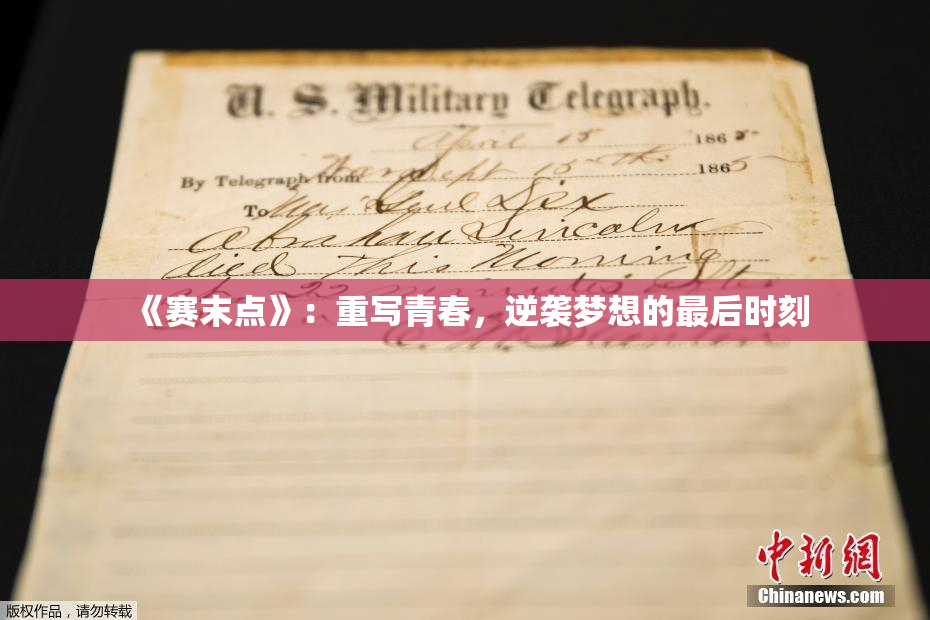 U. S. Military Telegraph.
April 15 1865
By Telegraph from War Dept 15th 1865
To Maj Genl Dix
Abraham Lincoln
died This Morning
at 22 minutes after
《赛末点》：重写青春，逆袭梦想的最后时刻
E. M. Stanton
中新网
Chinanews.com
版权作品，请勿转载